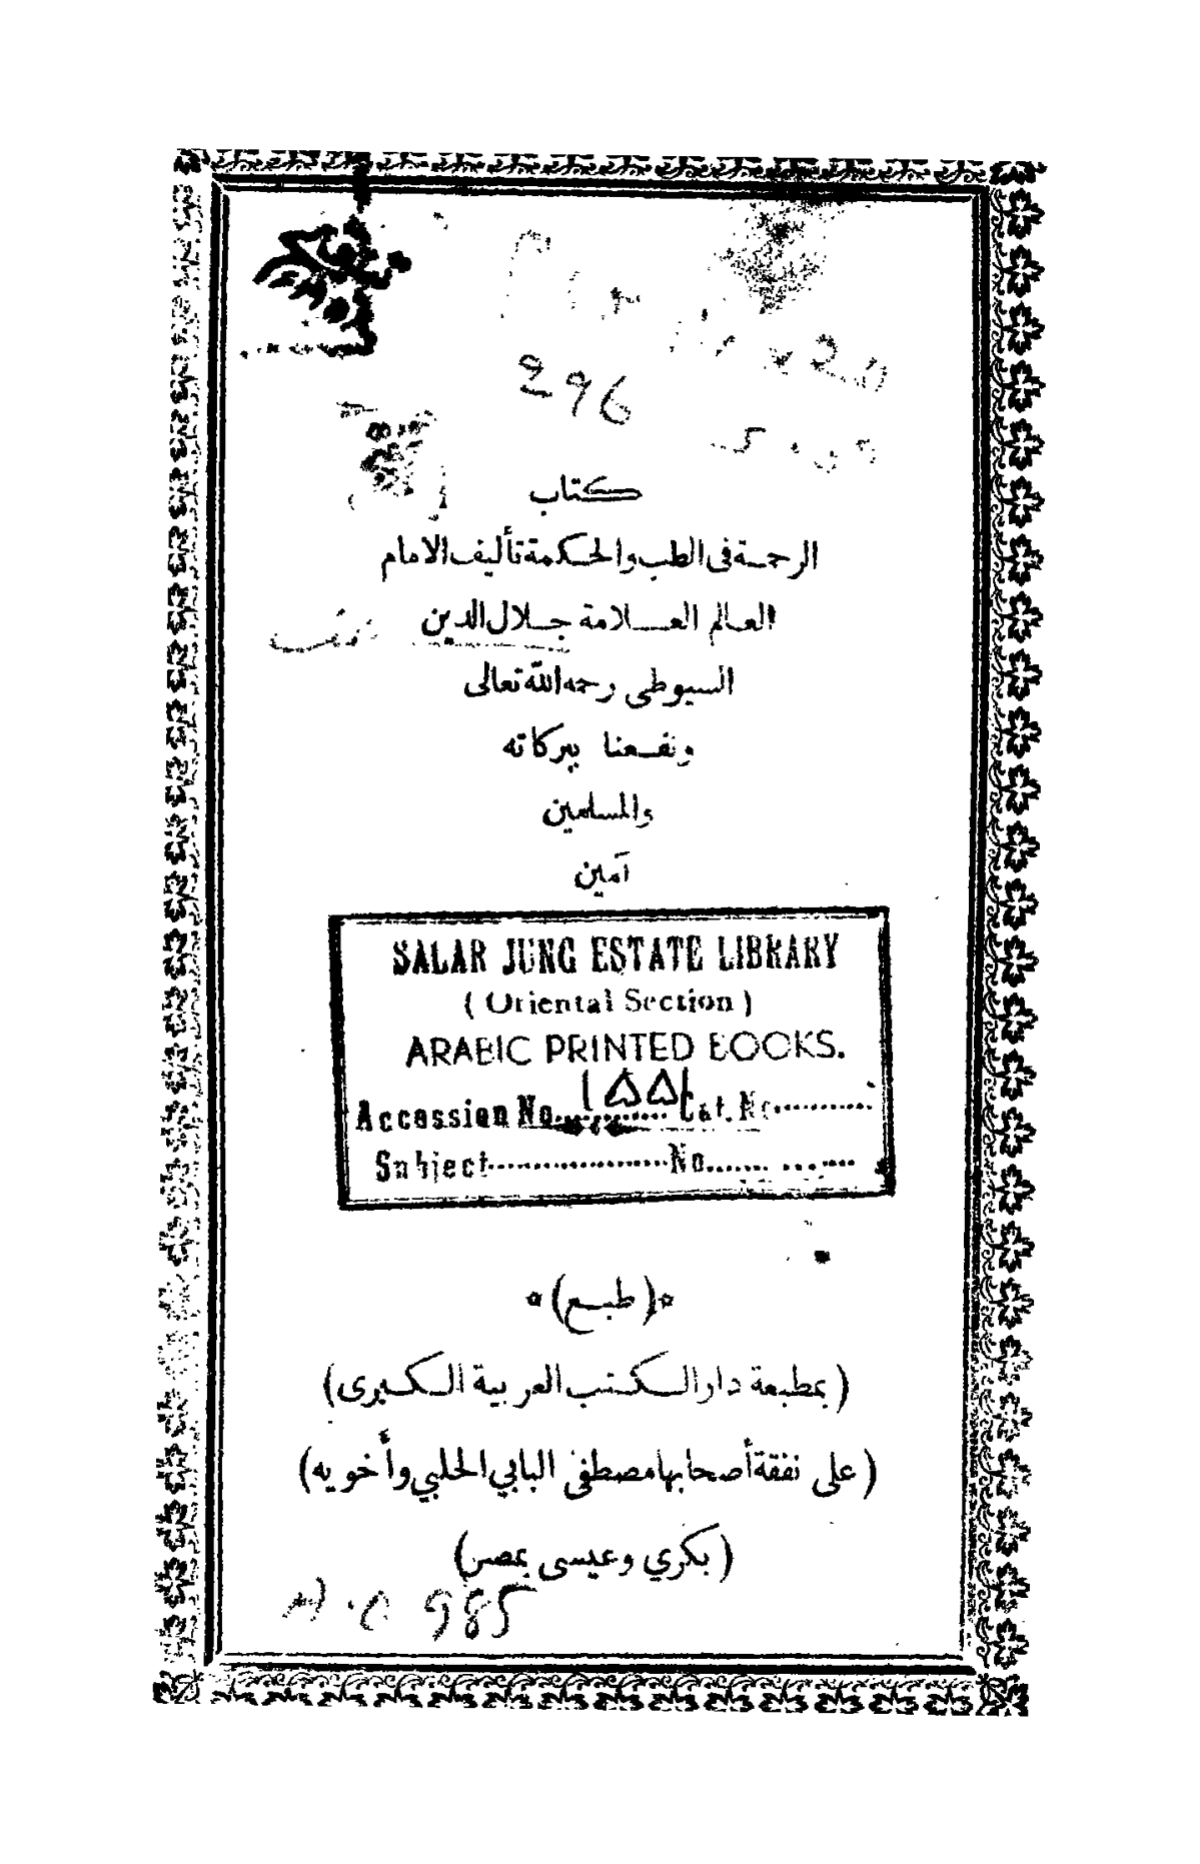 296
كتاب
الرحمة فى الطب والحكمة تأليف الامام
العالم العلامة جلال الدين
السيوطى رحمه الله تعالى
ونفعنا ببركاته
والمسلمين
آمين
SALAR JUNG ESTATE LIBRARY
( Oriental Section )
ARABIC PRINTED BOOKS.
Accession No. ١٥٥١ Cat. No
Subject No.
(طبع)
(بمطبعة دار الكتب العربية الكبرى)
(على نفقة أصحابها مصطفى البابي الحلبي وأخويه)
(بكري وعيسى بمصر)
985